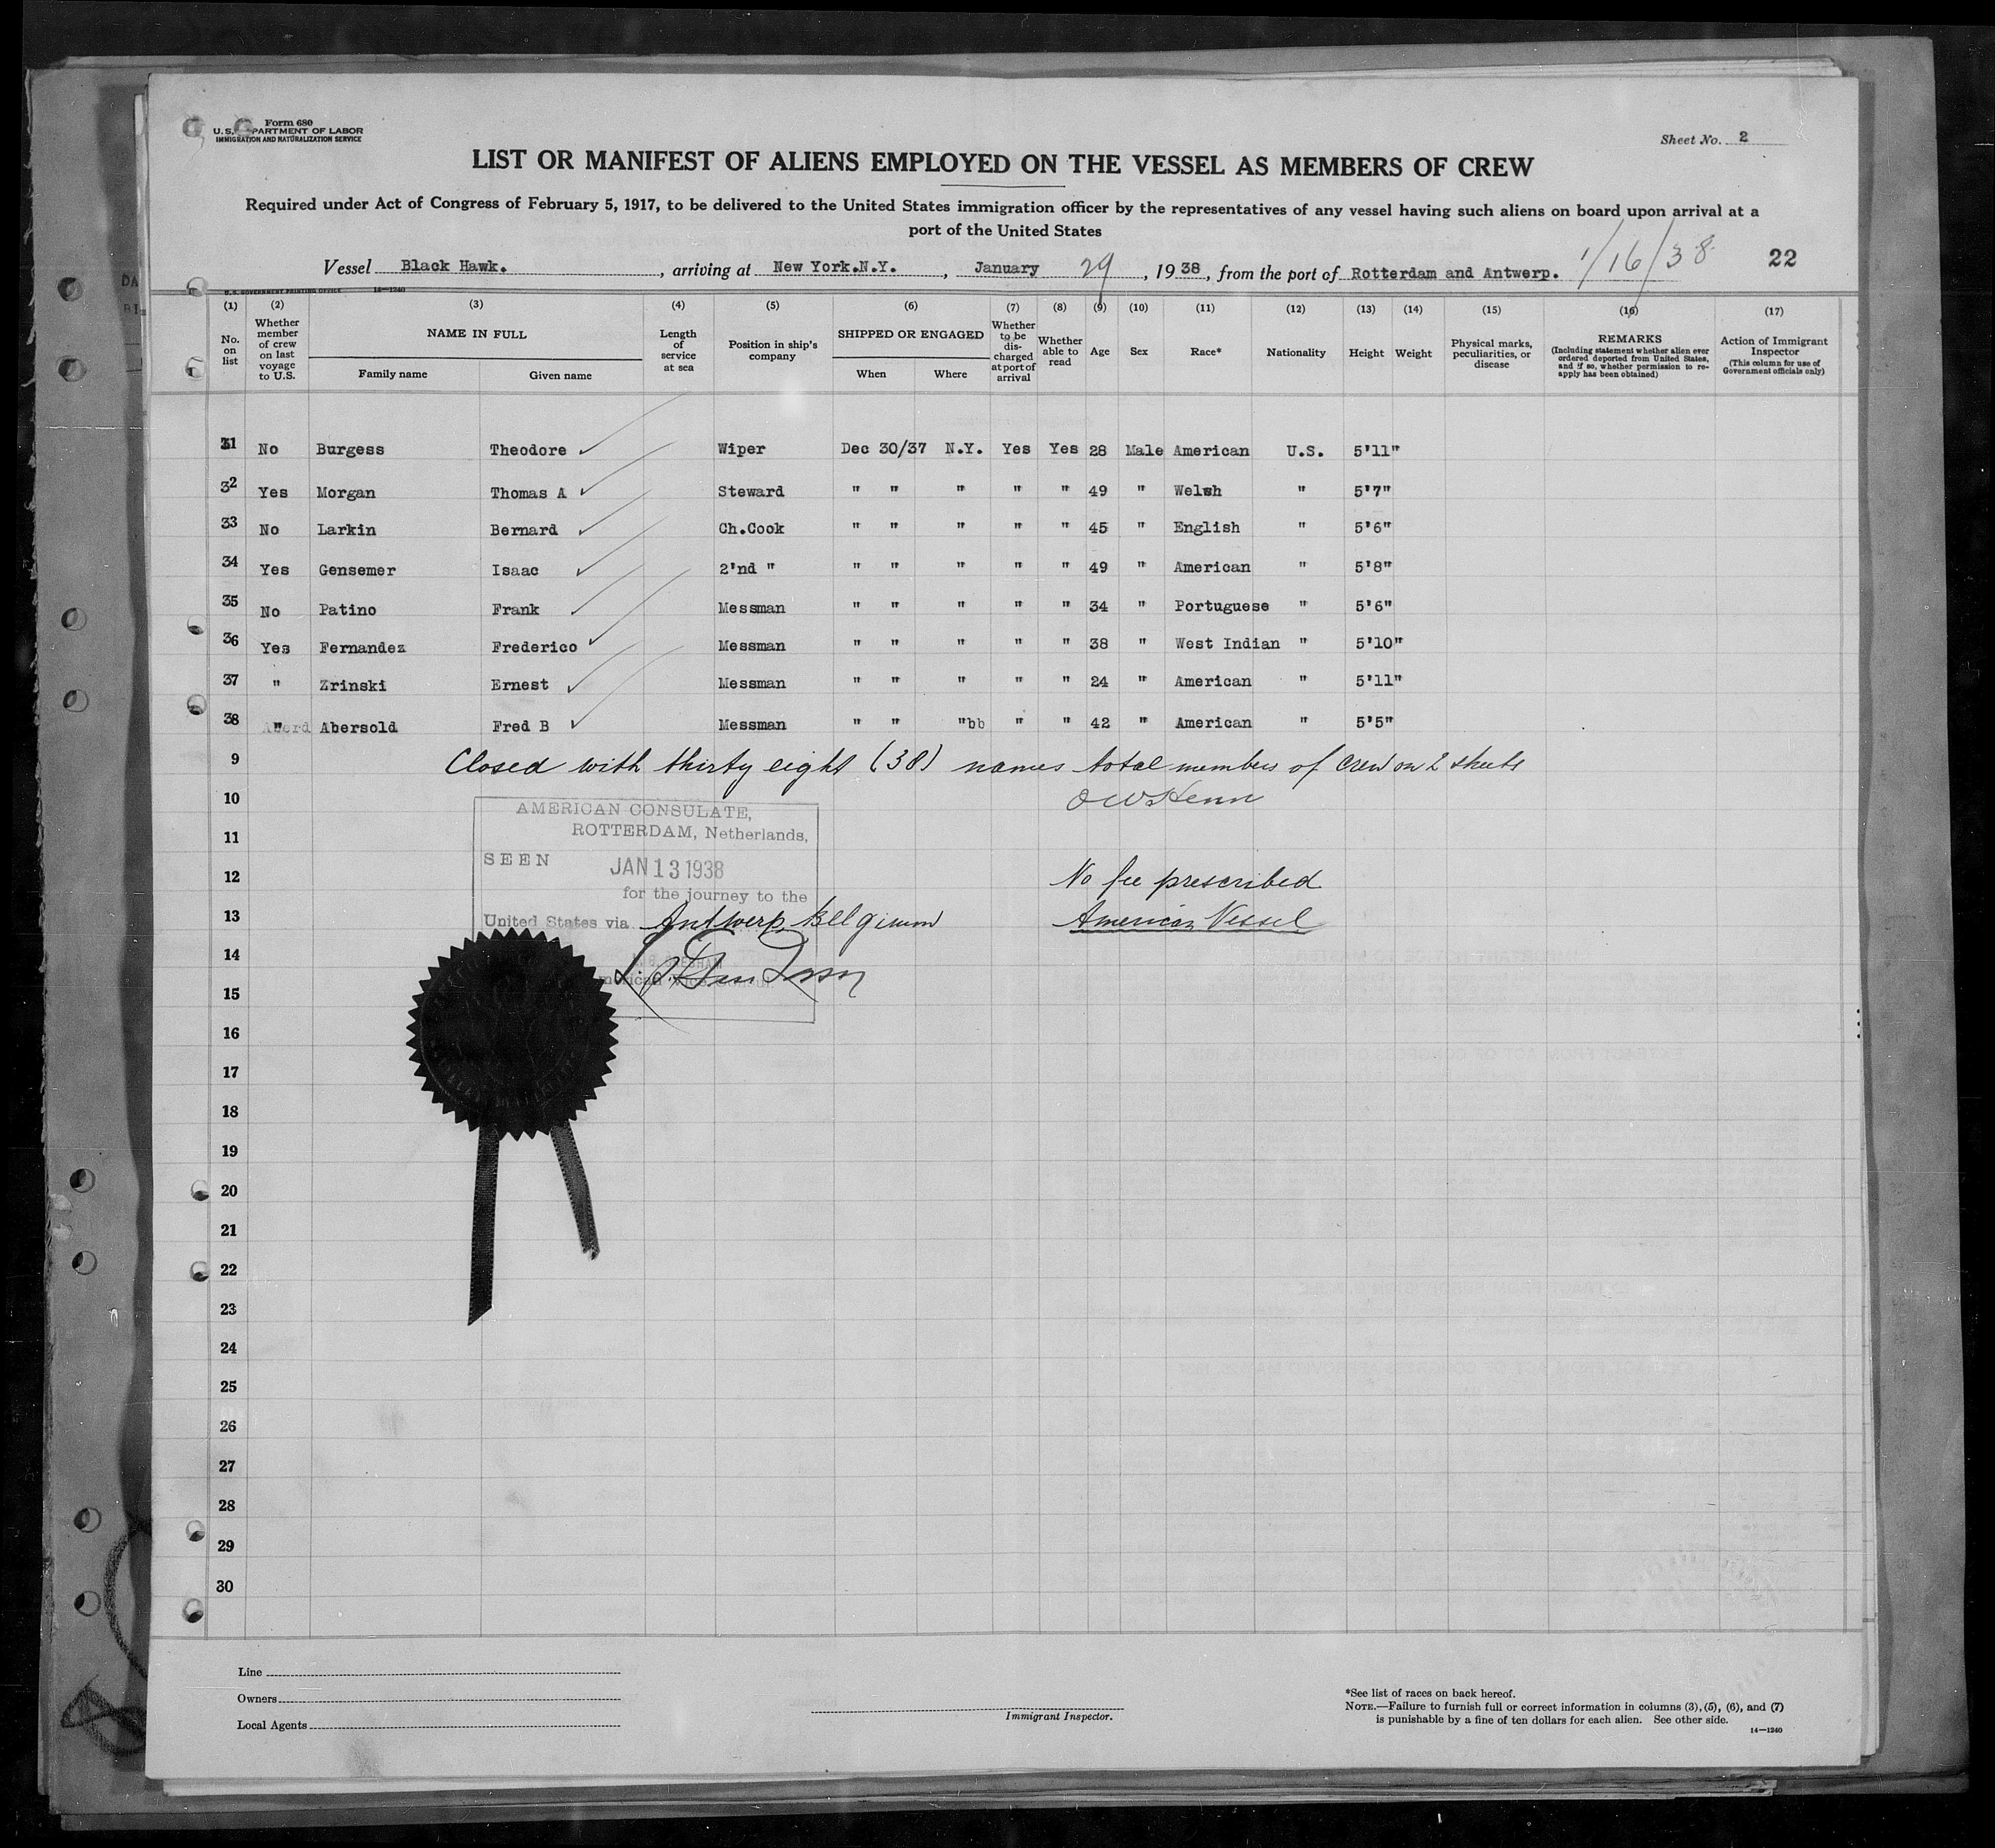 Form 680
U.S. DEPARTMENT OF LABOR
IMMIGRATION AND NATURALIZATION SERVICE
Sheet No. 2
LIST OR MANIFEST OF ALIENS EMPLOYED ON THE VESSEL AS MEMBERS OF CREW
Required under Act of Congress of February 5, 1917, to be delivered to the United States immigration officer by the representatives of any vessel having such aliens on board upon arrival at a
port of the United States
Vessel Black Hawk. , arriving at New York.N.Y. , January 29 , 19 38 , from the port of Rotterdam and Antwerp. 1/16/38 22
U.S. GOVERNMENT PRINTING OFFICE 14—1240
(1) (2) (3) (4) (5) (6) (7) (8) (9) (10) (11) (12) (13) (14) (15) (16) (17)
No. on list
Whether member of crew on last voyage to U.S.
NAME IN FULL
Family name Given name
Length of service at sea
Position in ship's company
SHIPPED OR ENGAGED
When Where
Whether to be discharged at port of arrival
Whether able to read
Age
Sex
Race*
Nationality
Height
Weight
Physical marks, peculiarities, or disease
REMARKS
(Including statement whether alien ever ordered deported from United States, and if so, whether permission to re-apply has been obtained)
Action of Immigrant Inspector
(This column for use of Government officials only)
31 No Burgess Theodore Wiper Dec 30/37 N.Y. Yes Yes 28 Male American U.S. 5'11"
32 Yes Morgan Thomas A Steward " " " " " 49 " Welsh " 5'7"
33 No Larkin Bernard Ch.Cook " " " " " 45 " English " 5'6"
34 Yes Gensemer Isaac 2'nd " " " " " " 49 " American " 5'8"
35 No Patino Frank Messman " " " " " 34 " Portuguese " 5'6"
36 Yes Fernandez Frederico Messman " " " " " 38 " West Indian " 5'10"
37 " Zrinski Ernest Messman " " " " " 24 " American " 5'11"
38 " Abersold Fred B Messman " " "bb " " 42 " American " 5'5"
9 Closed with thirty eight (38) names total members of crew on 2 sheets
10
AMERICAN CONSULATE,
ROTTERDAM, Netherlands,
11
SEEN JAN 13 1938
12 No fee prescribed
for the journey to the
13 United States via Antwerp Belgium American Vessel
14
15
16
17
18
19
20
21
22
23
24
25
26
27
28
29
30
Line
Owners
Local Agents
Immigrant Inspector.
*See list of races on back hereof.
NOTE.—Failure to furnish full or correct information in columns (3), (5), (6), and (7)
is punishable by a fine of ten dollars for each alien. See other side.
14—1240